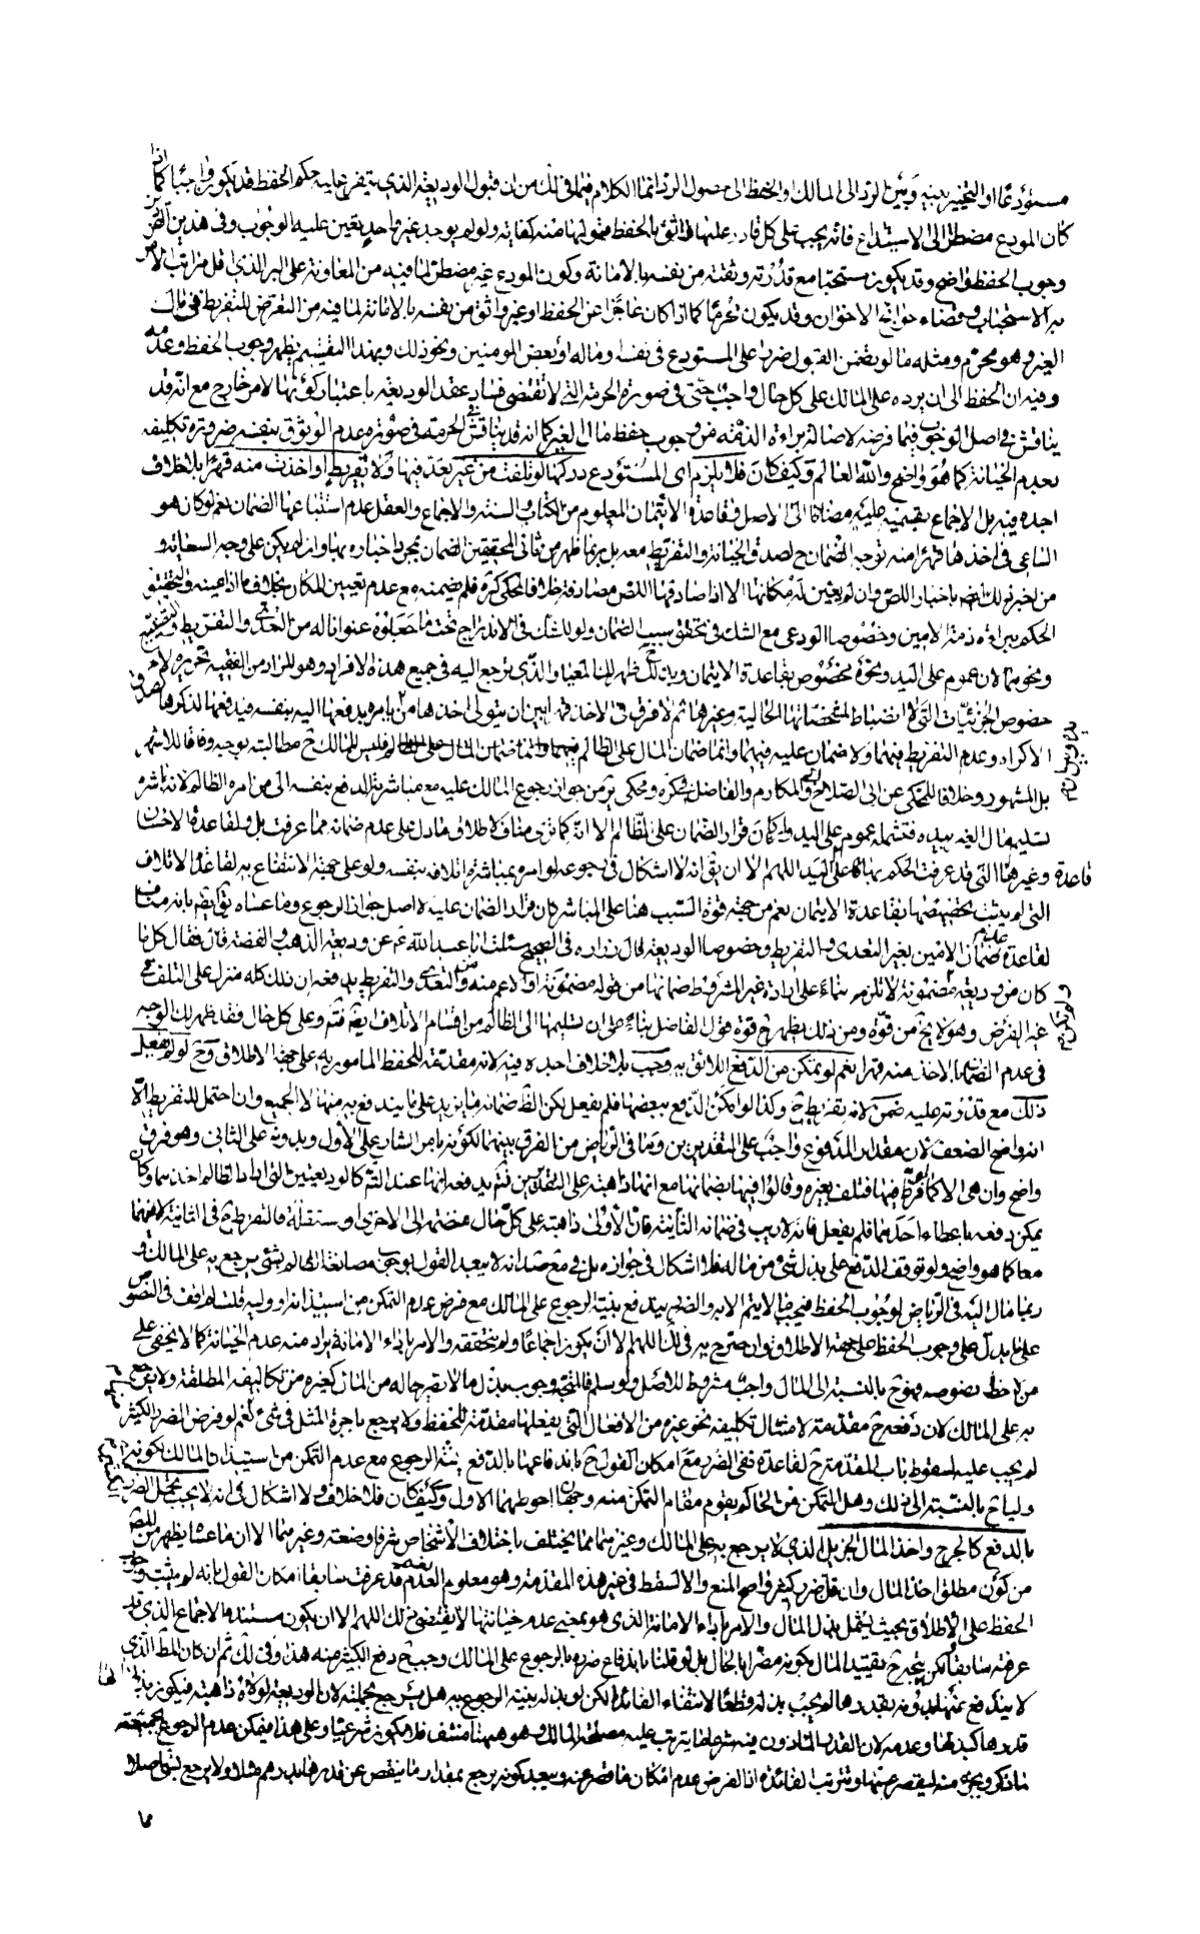 مستودعا او التخيير بينه وبين الرد الى المالك او الحفظ الى حصول الرد انما الكلام فيما في تلك من ان قبول الوديعة الذي يتفرع عليه حكم الحفظ قد يكون واجبا كما اذا
كان المودع مضطرا الى الاستيداع فانه يجب على كل قادر عليها واثق بالحفظ قبولها منه كفاية ولو لم يوجد غير واحد تعين عليه الوجوب وفي هذين
وجوب الحفظ واضح وقد يكون مستحبا مع قدرته وثقته من نفسه بالامانة وكون المودع غير مضطر لما فيه من المعاونة على البر الذي اقل مراتب الامر
به الاستحباب وقضاء حوائج الاخوان وقد يكون محرما كما اذا كان عاجزا عن الحفظ او غير واثق من نفسه بالامانة لما فيه من التعرض للتفريط في مال
الغير وهو محرم ومثله ما لو تضمن القبول ضررا على المستودع في نفسه او ماله او بعض المومنين ونحو ذلك وبهذا التقسيم يظهر وجوب الحفظ وعدمه
وفيه ان الحفظ الى ان يرده على المالك على كل حال واجب حتى في صورة الحرمة التي لا تقتضي فساد عقد الوديعة باعتبار كونها لامر خارج مع انه قد
يناقش في اصل الوجوب فيما فرضه لاصالة براءة الذمة من وجوب حفظ مال الغير كما انه قد يناقش في الحرمة في صورة عدم الوثوق بنفسه ضرورة تكليفه
بعدم الخيانة كما هو واضح والله العالم وكيف كان فلا يلزم اي المستودع دركها لو تلفت من غير تعد فيها ولا تفريط او اخذت منه قهرا بلا خلاف
اجده فيه بل الاجماع بقسميه عليه مضافا الى الاصل وقاعدة الائتمان المعلوم من الكتاب والسنة والاجماع والعقل عدم استتباعها الضمان نعم لو كان هو
الساعي في اخذها قهرا منه توجه الضمان ح لصدق الخيانة والتفريط معه بل ربما ظهر من ثاني المحققين الضمان بمجرد اخباره بها وان لم يكن على وجه السعاية و
من لغير ذلك باخبار اللص وان لم يعين له مكانها الا اذا صادفها اللص مصادفة خلافا للمحكي كره فلم يضمنه مع عدم تعيين المكان بخلاف ما اذا عينه والتحقيق
الحكم ببراءة ذمة الامين وخصوصا الودعي مع الشك في تحقق سبب الضمان ولو للشك في الاندراج تحت ما جعلوه عنوانا له من التعدي والتفريط والتضييع
ونحوها لان عموم على اليد ونحوه مخصوص بقاعدة الايتمان وبذلك ظهر لك المعيار الذي يرجع اليه في جميع هذه الافراد وهو المراد من الفقيه تحريره لا
خصوص الجزئيات التي لا انضباط لمشخصاتها الحالية وغيرها ثم لا فرق في الاخذ قهرا بين ان يتولى اخذها من يده وبين ان يامره بدفعها اليه بنفسه فيدفعها لذكرها لصدق
الاكراه وعدم التفريط فيهما ولا ضمان عليه فيهما وانما ضمان المال على الظالم فليس للمالك ح مطالبته بوجه وفاقا للاشهر
بل المشهور وخلافا للمحكي عن ابي الصلاح وابي المكارم والفاضل في كره ومحكي ير من جواز رجوع المالك عليه مع مباشرته الدفع بنفسه الى من امره الظالم لانه باشر
تسليم مال الغير بيده فتشمله عموم على اليد وان كان قرار الضمان على الظالم الا انه كما ترى مناف لاطلاق ما دل على عدم ضمانه مما عرفت بل ولقاعدة الاحسان
وغيرهما التي قد عرفت الحكم بها على اليد اللهم الا ان يق انه لا اشكال في رجوعه لو امره بمباشرة اتلافه بنفسه ولو على جهة الانتفاع به لقاعدة الاتلاف قاعدة
التي لم يثبت تخصيصها بقاعدة الايتمان نعم من جهة قوة السبب هنا على المباشر كان قرار الضمان عليه لا اصل جواز الرجوع وما عساه يق ايض بانه مناف
لقاعدة عدم ضمان الامين بغير التعدي والتفريط وخصوصا الوديعة قال زرارة في الصحيح سئلت ابا عبد الله ع عن وديعة الذهب والفضة قال فقال كل ما
كان من وديعة ولم تكن مضمونة لا تلزم بناء على ارادة غير المشروط ضمانها من قوله مضمونة او الاعم منه ومن التعدي والتفريط يدفعه ان ذلك كله منزل على التلف في
غير الفرض وهو لا يخ من قوة ومن ذلك يظهر لك قوة قول الفاضل بناء على ان تسليمها الى الظالم من اقسام الاتلاف ايض فتم وعلى كل حال فقد ظهر لك الوجه
في عدم الضمان بالاخذ منه قهرا نعم لو تمكن من الدفع اللائق به وجب بلا خلاف اجده فيه لانه مقدمة للحفظ المامور به على جهة الاطلاق وح لو لم يفعل
ذلك مع قدرته عليه ضمن لانه تفريط ح وكذا لو امكن الدفع ببعضها فلم يفعل لكن الظ ضمانه ما يزيد على ما يندفع به منها لا الجميع وان احتمل للتفريط الا
انه واضح الضعف لان مقدار المدفوع واجب على التقديرين وما في الرياض من الفرق بينهما لكونه بامر الشارع على الاول وبدونه على الثاني وهو فرق
واضح وان هي الا كما لو فرط فيها فتلف بغيره وقالوا فيها بضمانها مع انها ذاهبة على التقديرين فتم يدفعه انها عند التم كالوديعتين التي اراد الظالم احدهما وكان
يمكن دفعه باعطاء احديهما فلم يفعل فانه لا ريب في ضمانه الثانية فان الاولى ذاهبة على كل حال منضمة الى الاخرى او مستقلة فالتفريط في الثانية لا فيهما
معا كما هو واضح ولو توقف الدفع على بذل شيء من ماله فلا اشكال في جوازه بل في مع صد انه لا يبعد القول بوجوب مصانعة الظالم بشيء يرجع به على المالك و
ربما مال اليه في الرياض لوجوب الحفظ فيجب ما لا يتم الا به والضرر يندفع بنية الرجوع على المالك مع فرض عدم التمكن من استيذانه او وليه قلت لم اقف في النصوص
على ما يدل على وجوب الحفظ على جهة الاطلاق وان صرح به في تلك اللهم الا ان يكون اجماعا ولم نتحققه والامر باداء الامانة يراد منه عدم الخيانة كما لا يخفى على
من لاحظ نصوصه فهو ح بالنسبة الى المال واجب مشروط للاصل ولو سلم فالمتجه وجوب بذل ما لا يضر بحاله من المال كغيره من تكاليفه المطلقة ولا يرجع
به على المالك لان دفعه ح مقدمة لامتثال تكليفه نحو غيره من الافعال التي يفعلها مقدمة للحفظ ولا يرجع باجرة المثل في شيء نعم لو فرض الضرر الكثير
لم يجب عليه لسقوط باب المقدمة ح لقاعدة نفي الضرر مع امكان القول ح باندفاعها بالدفع بنية الرجوع مع عدم التمكن من استيذان المالك لكونه
وليا ح بالنسبة الى ذلك وهل التمكن من الحاكم يقوم مقام التمكن منه وجهان احوطهما الاول وكيف كان فلا خلاف ولا اشكال في انه لا يجب تحمل الضرر
بالدفع كالجرح واخذ المال الجزيل الذي لا يرجع به على المالك وغيرهما مما يختلف باختلاف الاشخاص شرفا وضعة وغيرهما الا ان ما عساه يظهر من
من كون مطلق اخذ المال وان قل ضرر كثير واضح المنع والا لسقط في غير هذه المقدمة وهو معلوم العدم نعم قد عرفت سابقا امكان القول بانه لم يثبت وجوب
الحفظ على الاطلاق بحيث يشمل بذل المال والامر باداء الامانة الذي هو بمعنى عدم خيانتها لا يقتضي ذلك اللهم الا ان يكون مستنده الاجماع الذي قد
عرفته سابقا لكن يتجه ح تقييد المال بكونه مضرا بالحال بل لو قلنا باندفاع ضرره بالرجوع على المالك وجب ح دفع الكثير منه هذا وفي لك ثم ان كان المط الذي
لا يندفع عنها بدونه بقدرها لم يجب بذله قطعا لانتفاء الفائدة لكن لو بذله بنية الرجوع به هل يرجع بجملته لان الوديعة لولاه ذاهبة فيكون بذل
قدرها كبذلها وعدمه لان القدر الماذون فيه شرعا ما يترتب عليه مصلحة المالك وهو ههنا منتف فلا يكون شرعيا وعلى هذا فيمكن عدم الرجوع بجميعه
ما ذكر وبجزء منه ليقصر عنها وتترتب الفائدة اذا الفرض عدم امكان ما قصر عنه وبعيد كونه يرجع بمقدار ما ينقص عن قدرها بدرهم مثلا ولا يرجع بشيء اصلا
مما